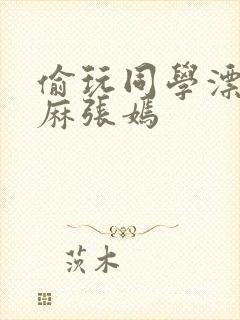 偷玩同學漂
麻張嫣
茨木